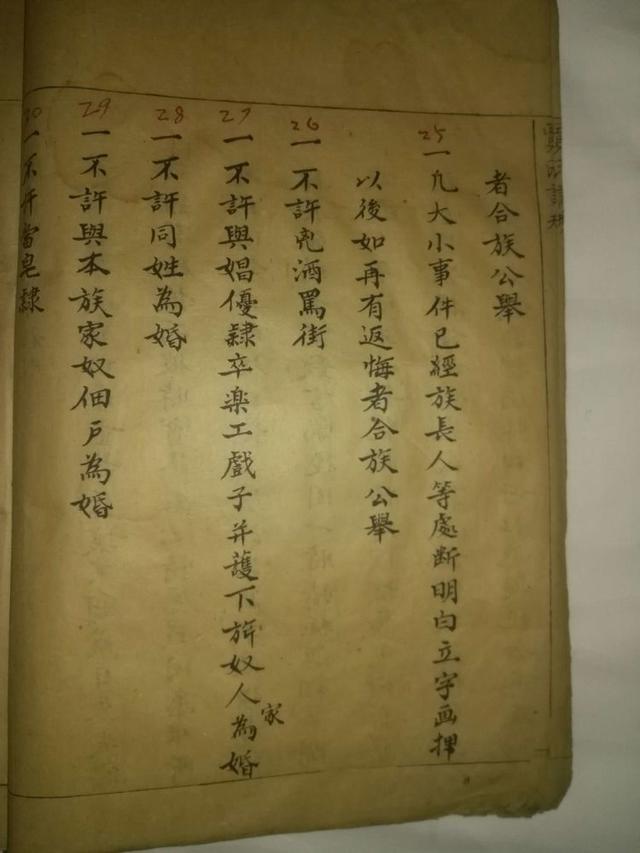 者合族公舉
25
一凡大小事件已經族長人等處断明白立字画押
以後如再有返悔者合族公舉
26
一不許兇酒罵街
27
一不許與娼優隸卒楽工戲子并護下旂奴人家為婚
28
一不許同姓為婚
29
一不許與本族家奴佃户為婚
30
一不許當皂隸